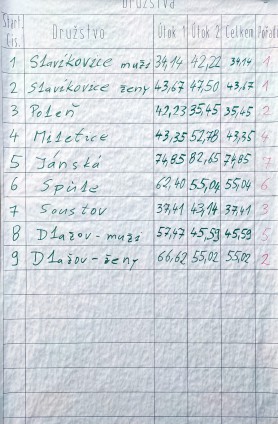 Družstva
Start. čís. Družstvo Útok 1 Útok 2 Celkem Pořadí
1 Slavíkovice muži 34,14 42,22 34,14 1
2 Slavíkovice ženy 43,67 47,50 43,67 1
3 Poleň 42,23 35,45 35,45 2
4 Miletice 43,35 52,78 43,35 4
5 Jánská 74,85 82,65 74,85 7
6 Spůle 62,40 55,04 55,04 6
7 Soustov 37,41 43,14 37,41 3
8 Dlažov - muži 57,47 45,59 45,59 5
9 Dlažov - ženy 66,62 55,02 55,02 2